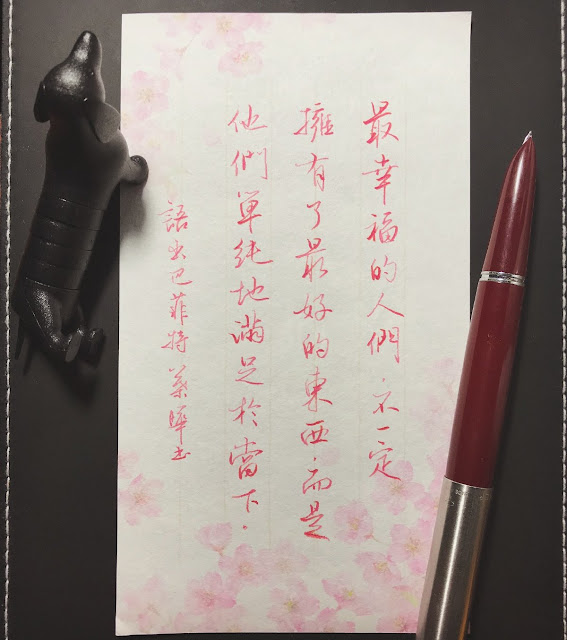 最幸福的人們，不一定
擁有了最好的東西，而是
他們單純地滿足於當下。
語出巴菲特 葉曄書